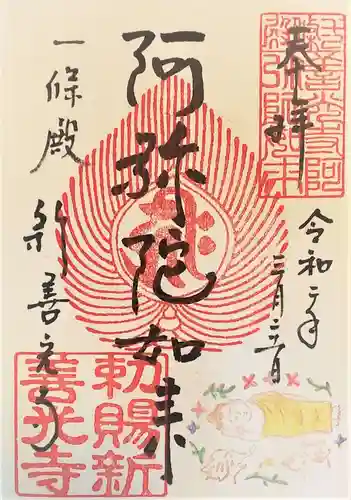 奉拝
令和二年
三月
阿弥陀如来
一條殿
新善光寺
勅賜新
善光寺